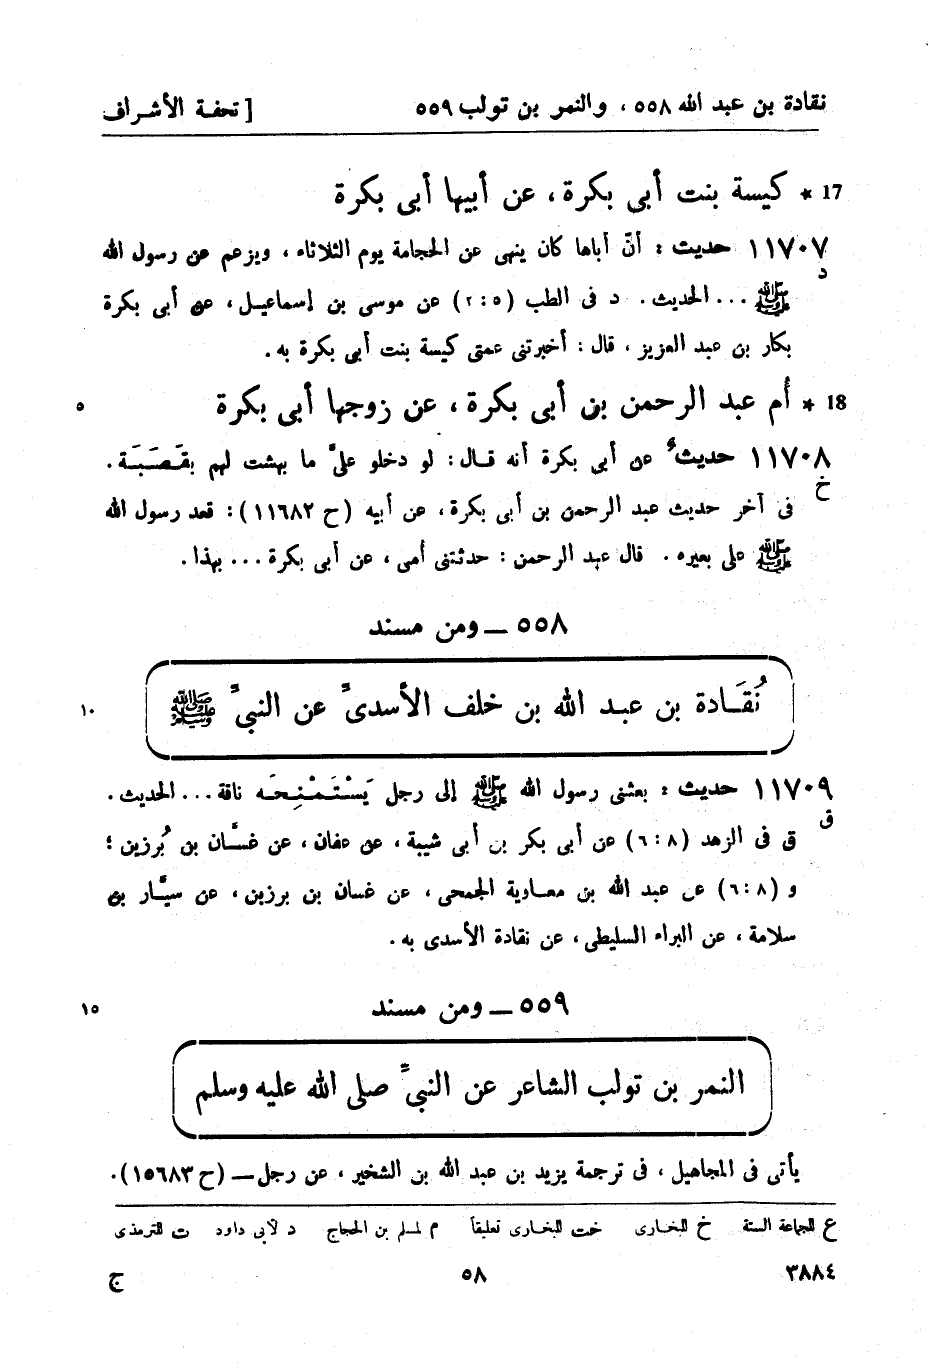 نقادة بن عبد الله ٥٥٨ ، والنمر بن تولب ٥٥٩ [ تحفة الأشراف
17 * كيسة بنت أبى بكرة ، عن أبيها أبى بكرة
١١٧٠٧ حديث : أنّ أباها كان ينهى عن الحجامة يوم الثلاثاء ، ويزعم عن رسول الله
د
ﷺ ... الحديث . د فى الطب (٥ : ٢) عن موسى بن إسماعيل ، عن أبى بكرة
بكار بن عبد العزيز ، قال : أخبرتنى عمتى كيسة بنت أبى بكرة به .
18 * أم عبد الرحمن بن أبى بكرة ، عن زوجها أبى بكرة ٥
١١٧٠٨ حديث عن أبى بكرة أنه قال : لو دخلو علىّ ما بهشت لهم بقَصَبَة .
خ
فى آخر حديث عبد الرحمن بن أبى بكرة ، عن أبيه (ح ١١٦٨٢) : قعد رسول الله
ﷺ على بعيره . قال عبد الرحمن : حدثتنى أمى ، عن أبى بكرة ... بهذا .
٥٥٨ ــ ومن مسند
نُقَادة بن عبد الله بن خلف الأسدىّ عن النبىّ ﷺ ١٠
١١٧٠٩ حديث : بعثنى رسول الله ﷺ إلى رجل يَسْتَمْنِحَه ناقة ... الحديث .
ق
ق فى الزهد (٨ : ٦) عن أبى بكر بن أبى شيبة ، عن عفان ، عن غسَّان بن بُرزين ؛
و (٨ : ٦) عن عبد الله بن معاوية الجمحى ، عن غسان بن برزين ، عن سيَّار بن
سلامة ، عن البراء السليطى ، عن نقادة الأسدى به .
٥٥٩ ــ ومن مسند ١٥
النمر بن تولب الشاعر عن النبىّ صلى الله عليه وسلم
يأتى فى المجاهيل ، فى ترجمة يزيد بن عبد الله بن الشخير ، عن رجل ــ (ح ١٥٦٨٣) .
ع للجماعة الستة خ للبخارى خت للبخارى تعليقاً م لمسلم بن الحجاج د لأبى داود ت للترمذى
٣٨٨٤ ٥٨ ج